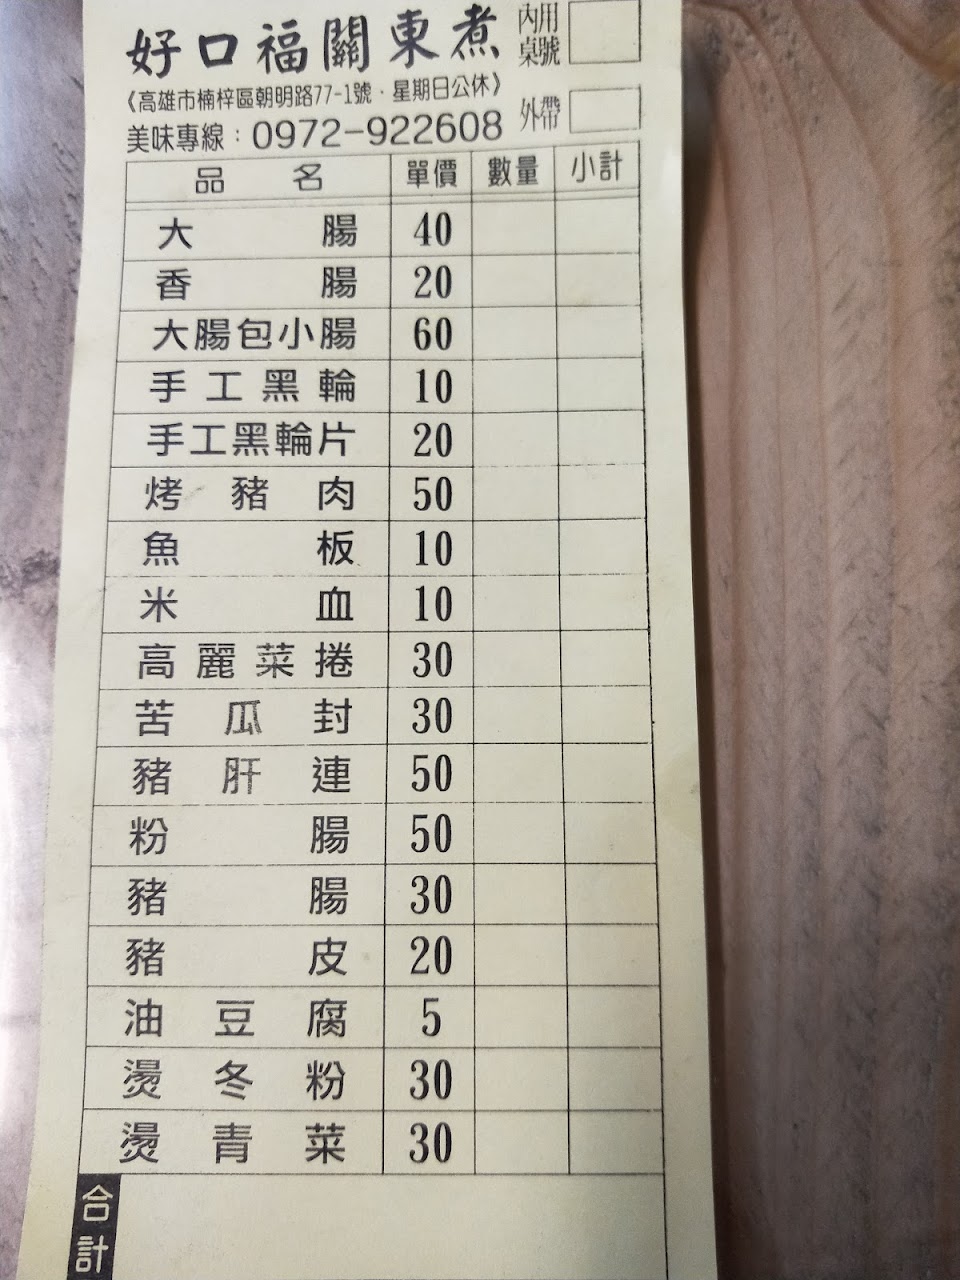 好口福關東煮
內用桌號
《高雄市楠梓區朝明路77-1號·星期日公休》
美味專線：0972-922608
外帶
品名 單價 數量 小計
大腸 40
香腸 20
大腸包小腸 60
手工黑輪 10
手工黑輪片 20
烤豬肉 50
魚板 10
米血 10
高麗菜捲 30
苦瓜封 30
豬肝連 50
粉腸 50
豬腸 30
豬皮 20
油豆腐 5
燙冬粉 30
燙青菜 30
合計